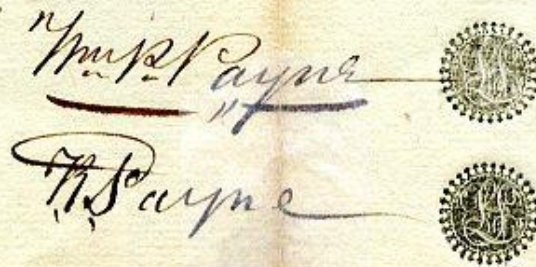 "Wm. R. Payne
"
R. S. Payne